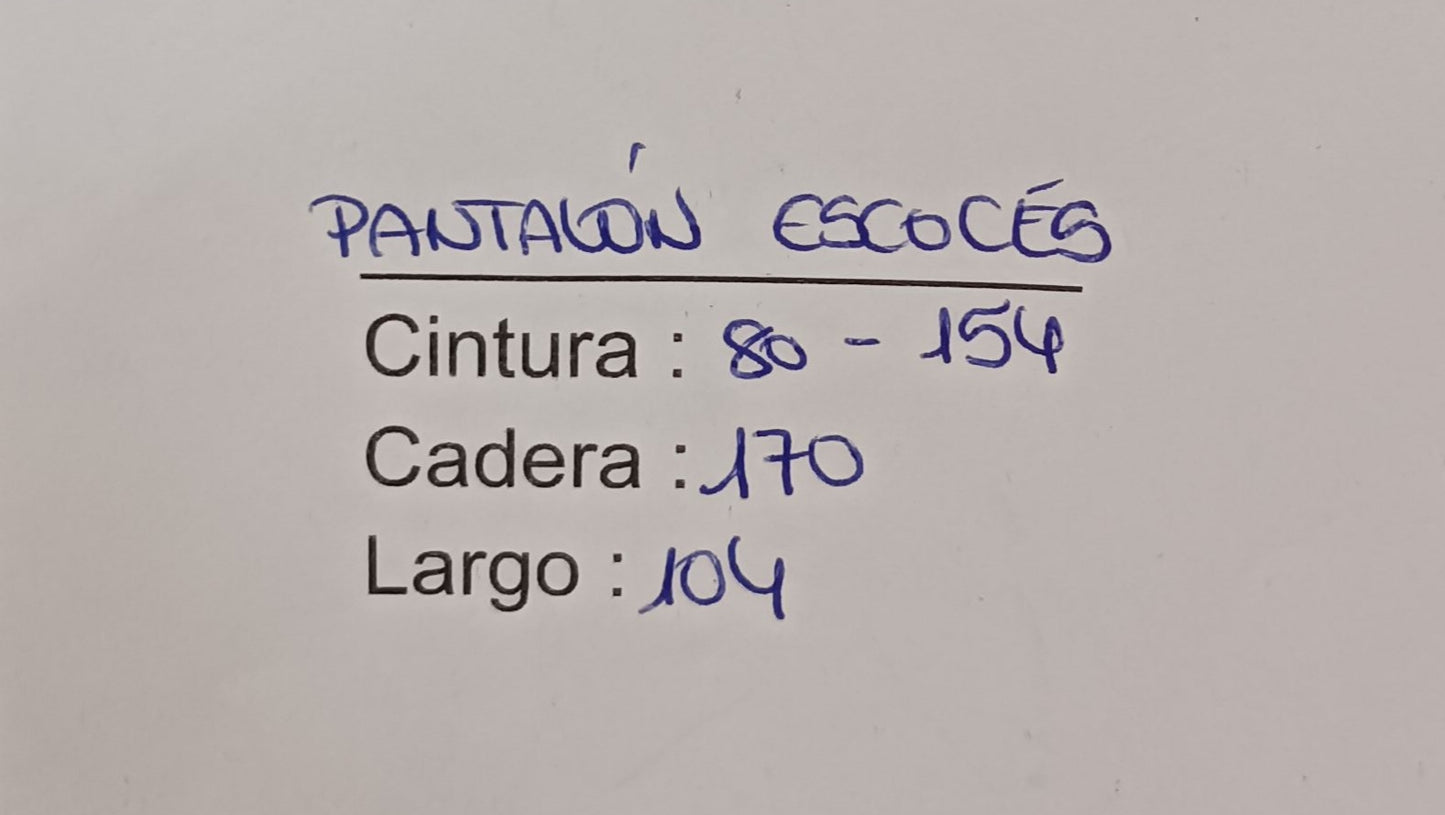 PANTALÓN ESCOCÉS
Cintura : 80 - 154
Cadera : 170
Largo : 104